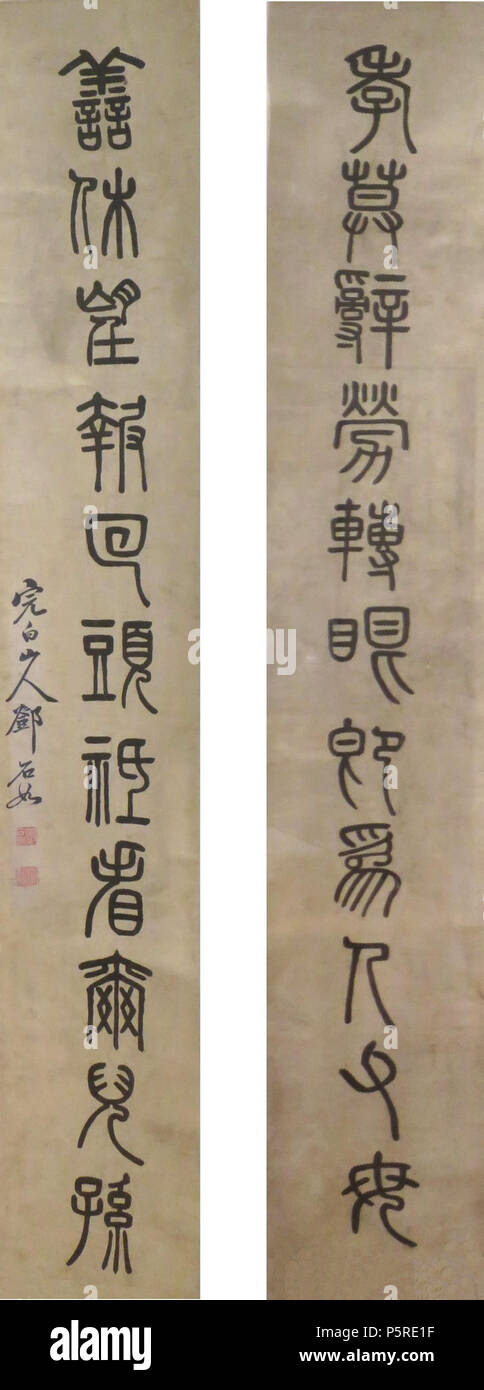 孝莫辭勞轉眼即為人父母
善休望報回頭祗看爾兒孫
完白山人鄧石如
alamy
Image ID: P5RE1F
www.alamy.com